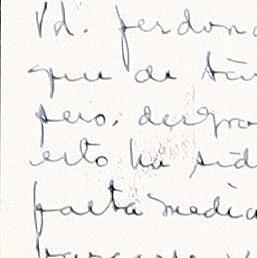 Vd. perdona
que de
pero, desgra
esto ha sid
falta media